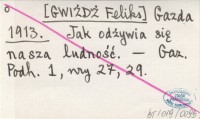 [GWIŻDŻ Feliks] Gazda
1913. Jak odżywia się
nasza ludność. — Gaz.
Podh. 1, nry 27, 29.